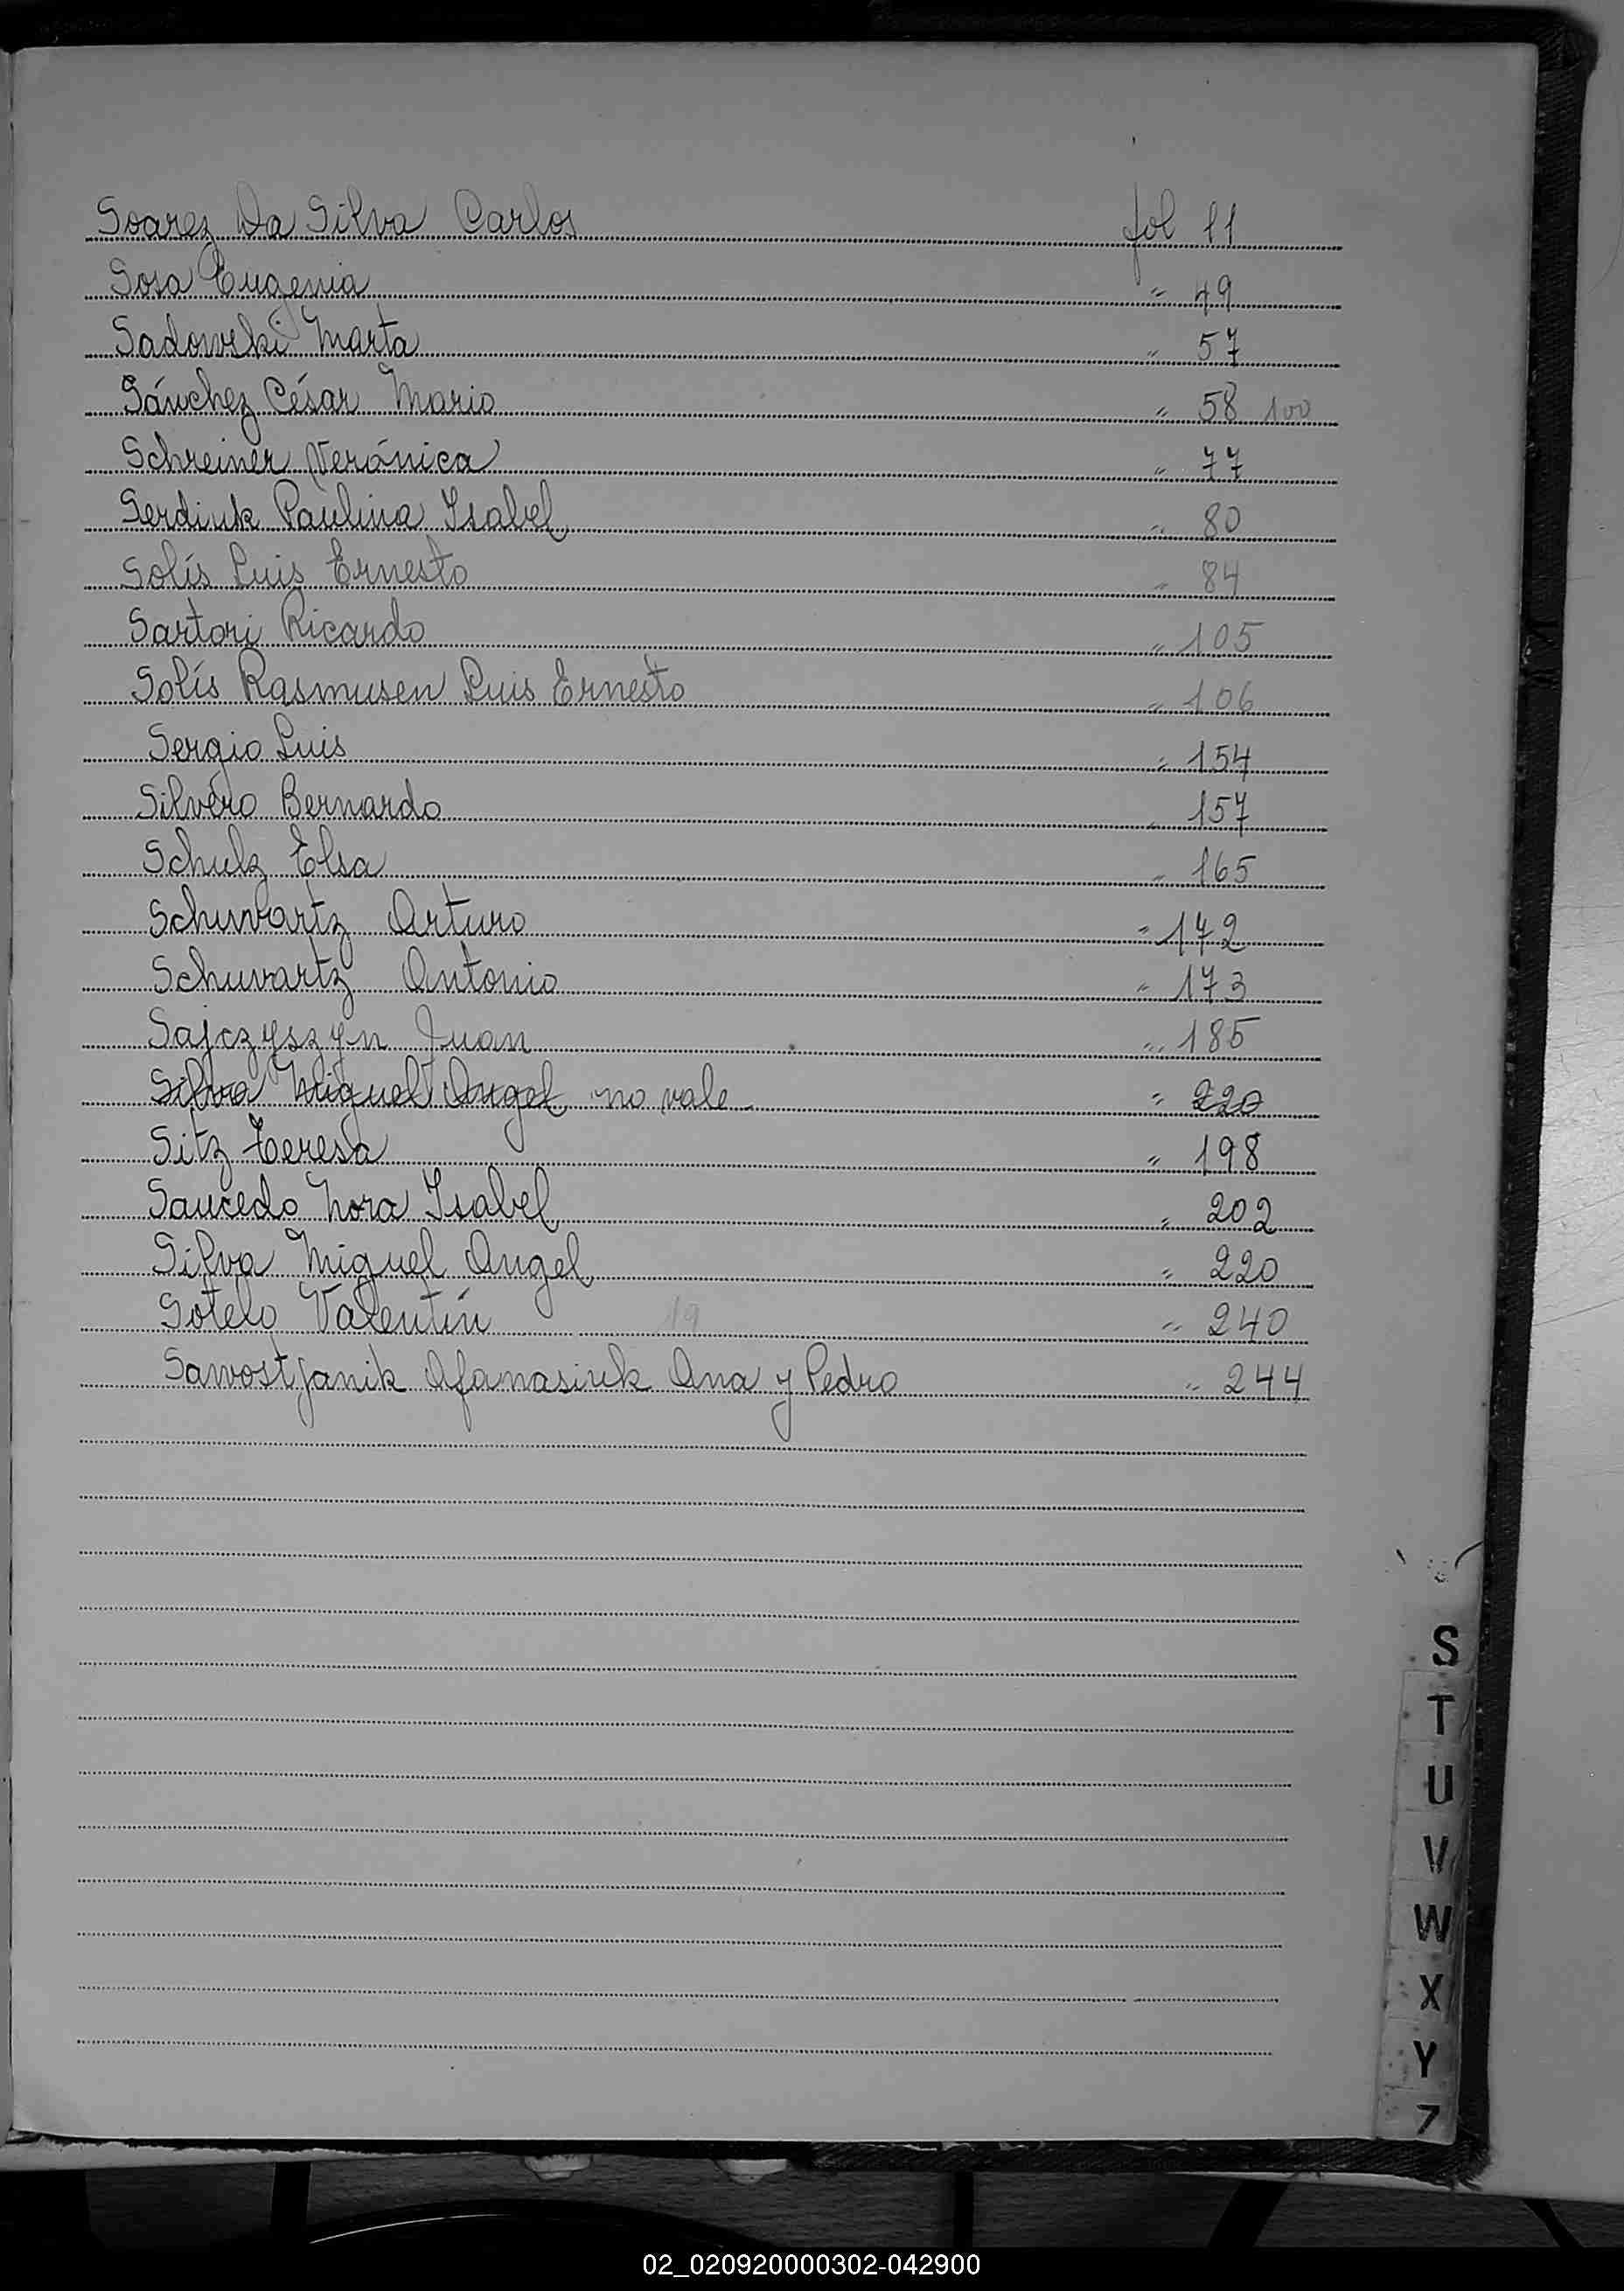 Soarez Da Silva Carlos fol 11
Sosa Eugenia " 49
Sadowski Marta " 57
Sánchez César Mario " 58 100
Schreiner Verónica " 77
Serdiuk Paulina Isabel " 80
Solís Luis Ernesto " 84
Sartori Ricardo " 105
Solís Rasmusen Luis Ernesto " 106
Sergio Luis " 154
Silvero Bernardo " 157
Schulz Elsa " 165
Schuvartz Arturo " 172
Schuvartz Antonio " 173
Sajczyszyn Juan " 185
Silva Miguel Angel no vale " 220
Sitz Teresa " 198
Saucedo Nora Isabel " 202
Silva Miguel Angel " 220
Sotelo Valentín 19 " 240
Sawostjanik Afanasiuk Ana y Pedro " 244
S
T
U
V
W
X
Y
Z
02_020920000302-042900